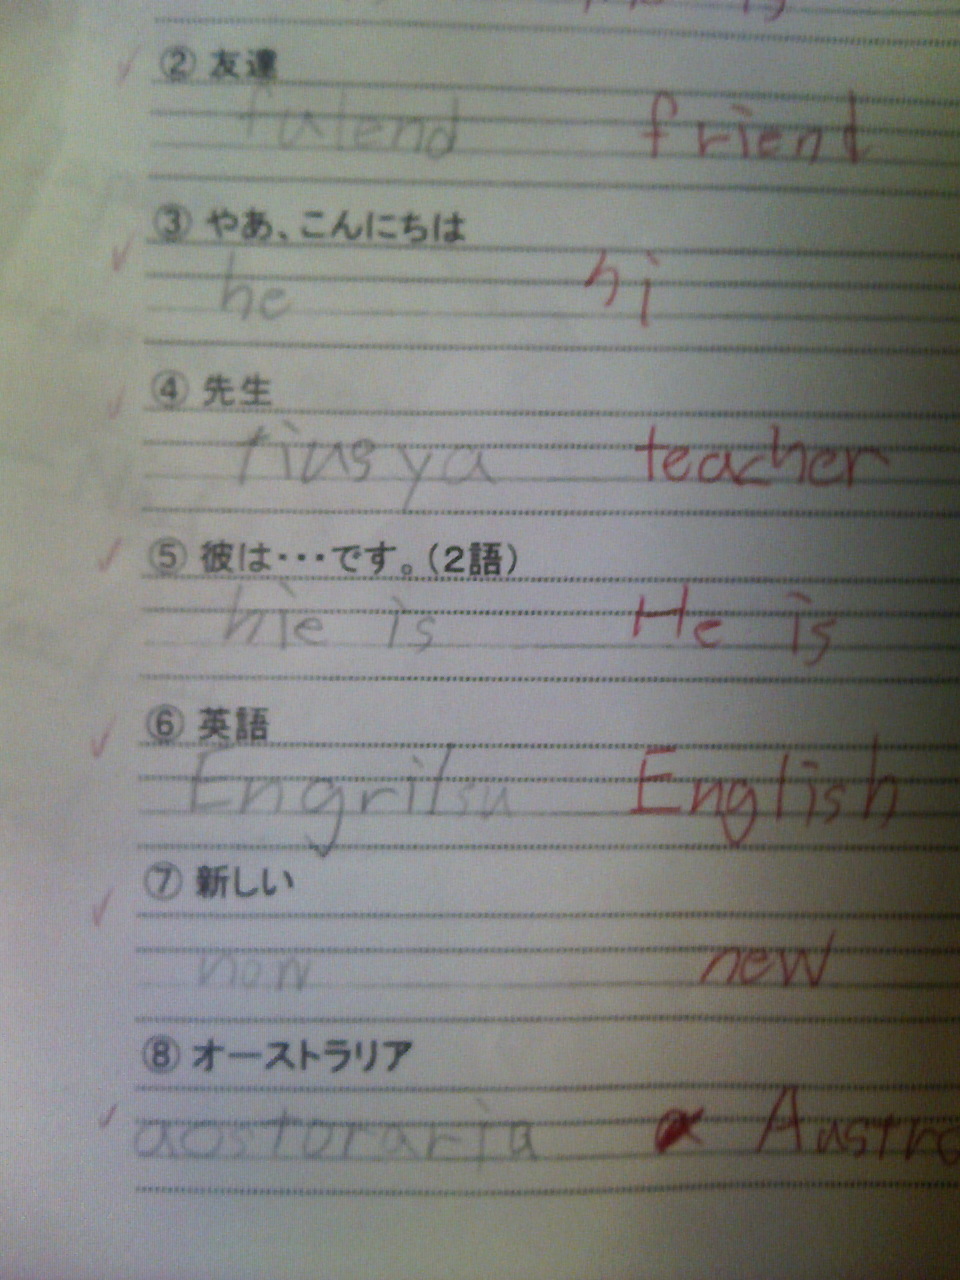 ② 友達
fulend friend
③ やあ、こんにちは
he hi
④ 先生
tiusya teacher
⑤ 彼は・・・です。(2語)
hie is He is
⑥ 英語
Engrilsu English
⑦ 新しい
now new
⑧ オーストラリア
aostoraria Austra